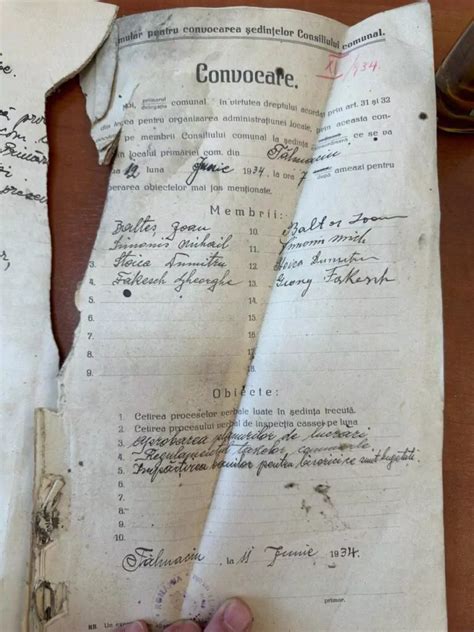 mular pentru convocarea ședințelor Consiliului comunal.
XI/934.
Convocare.
Noi, primarul comunal în virtutea dreptului acordat prin art. 31 și 32
delegația
din legea pentru organizarea administrației locale, prin aceasta con-
pe membrii Consiliului comunal la ședința extraordinară ce se va
în localul primăriei com. din Tălmaciu
12 luna Junie 1934 la ora 7 ameazi pentru
după
berarea obiectelor mai jos menționate.
Membrii:
Baltes Joan 10. Baltes Joan
Simonis Mihail 11. Simonis Mich
3. Stoica Dumitru 12. Stoica Dumitru
4. Fakesch Gheorghe 13. Georg Fakesch
5. 14.
6. 15.
7. 16.
8. 17.
9. 18.
Obiecte:
1. Cetirea proceselor verbale luate în ședința trecută.
2. Cetirea procesului verbal de inspecția cassei pe luna
3. Aprobarea planurilor de lucrări
4. Regulamentul taxelor comunale
5. Împărțirea banilor pentru biserici ce sunt bugetați
6.
7.
8.
9.
10.
Tălmaciu, la 11 Junie 1934.
primar.
ROMÂNIA
NB. Un